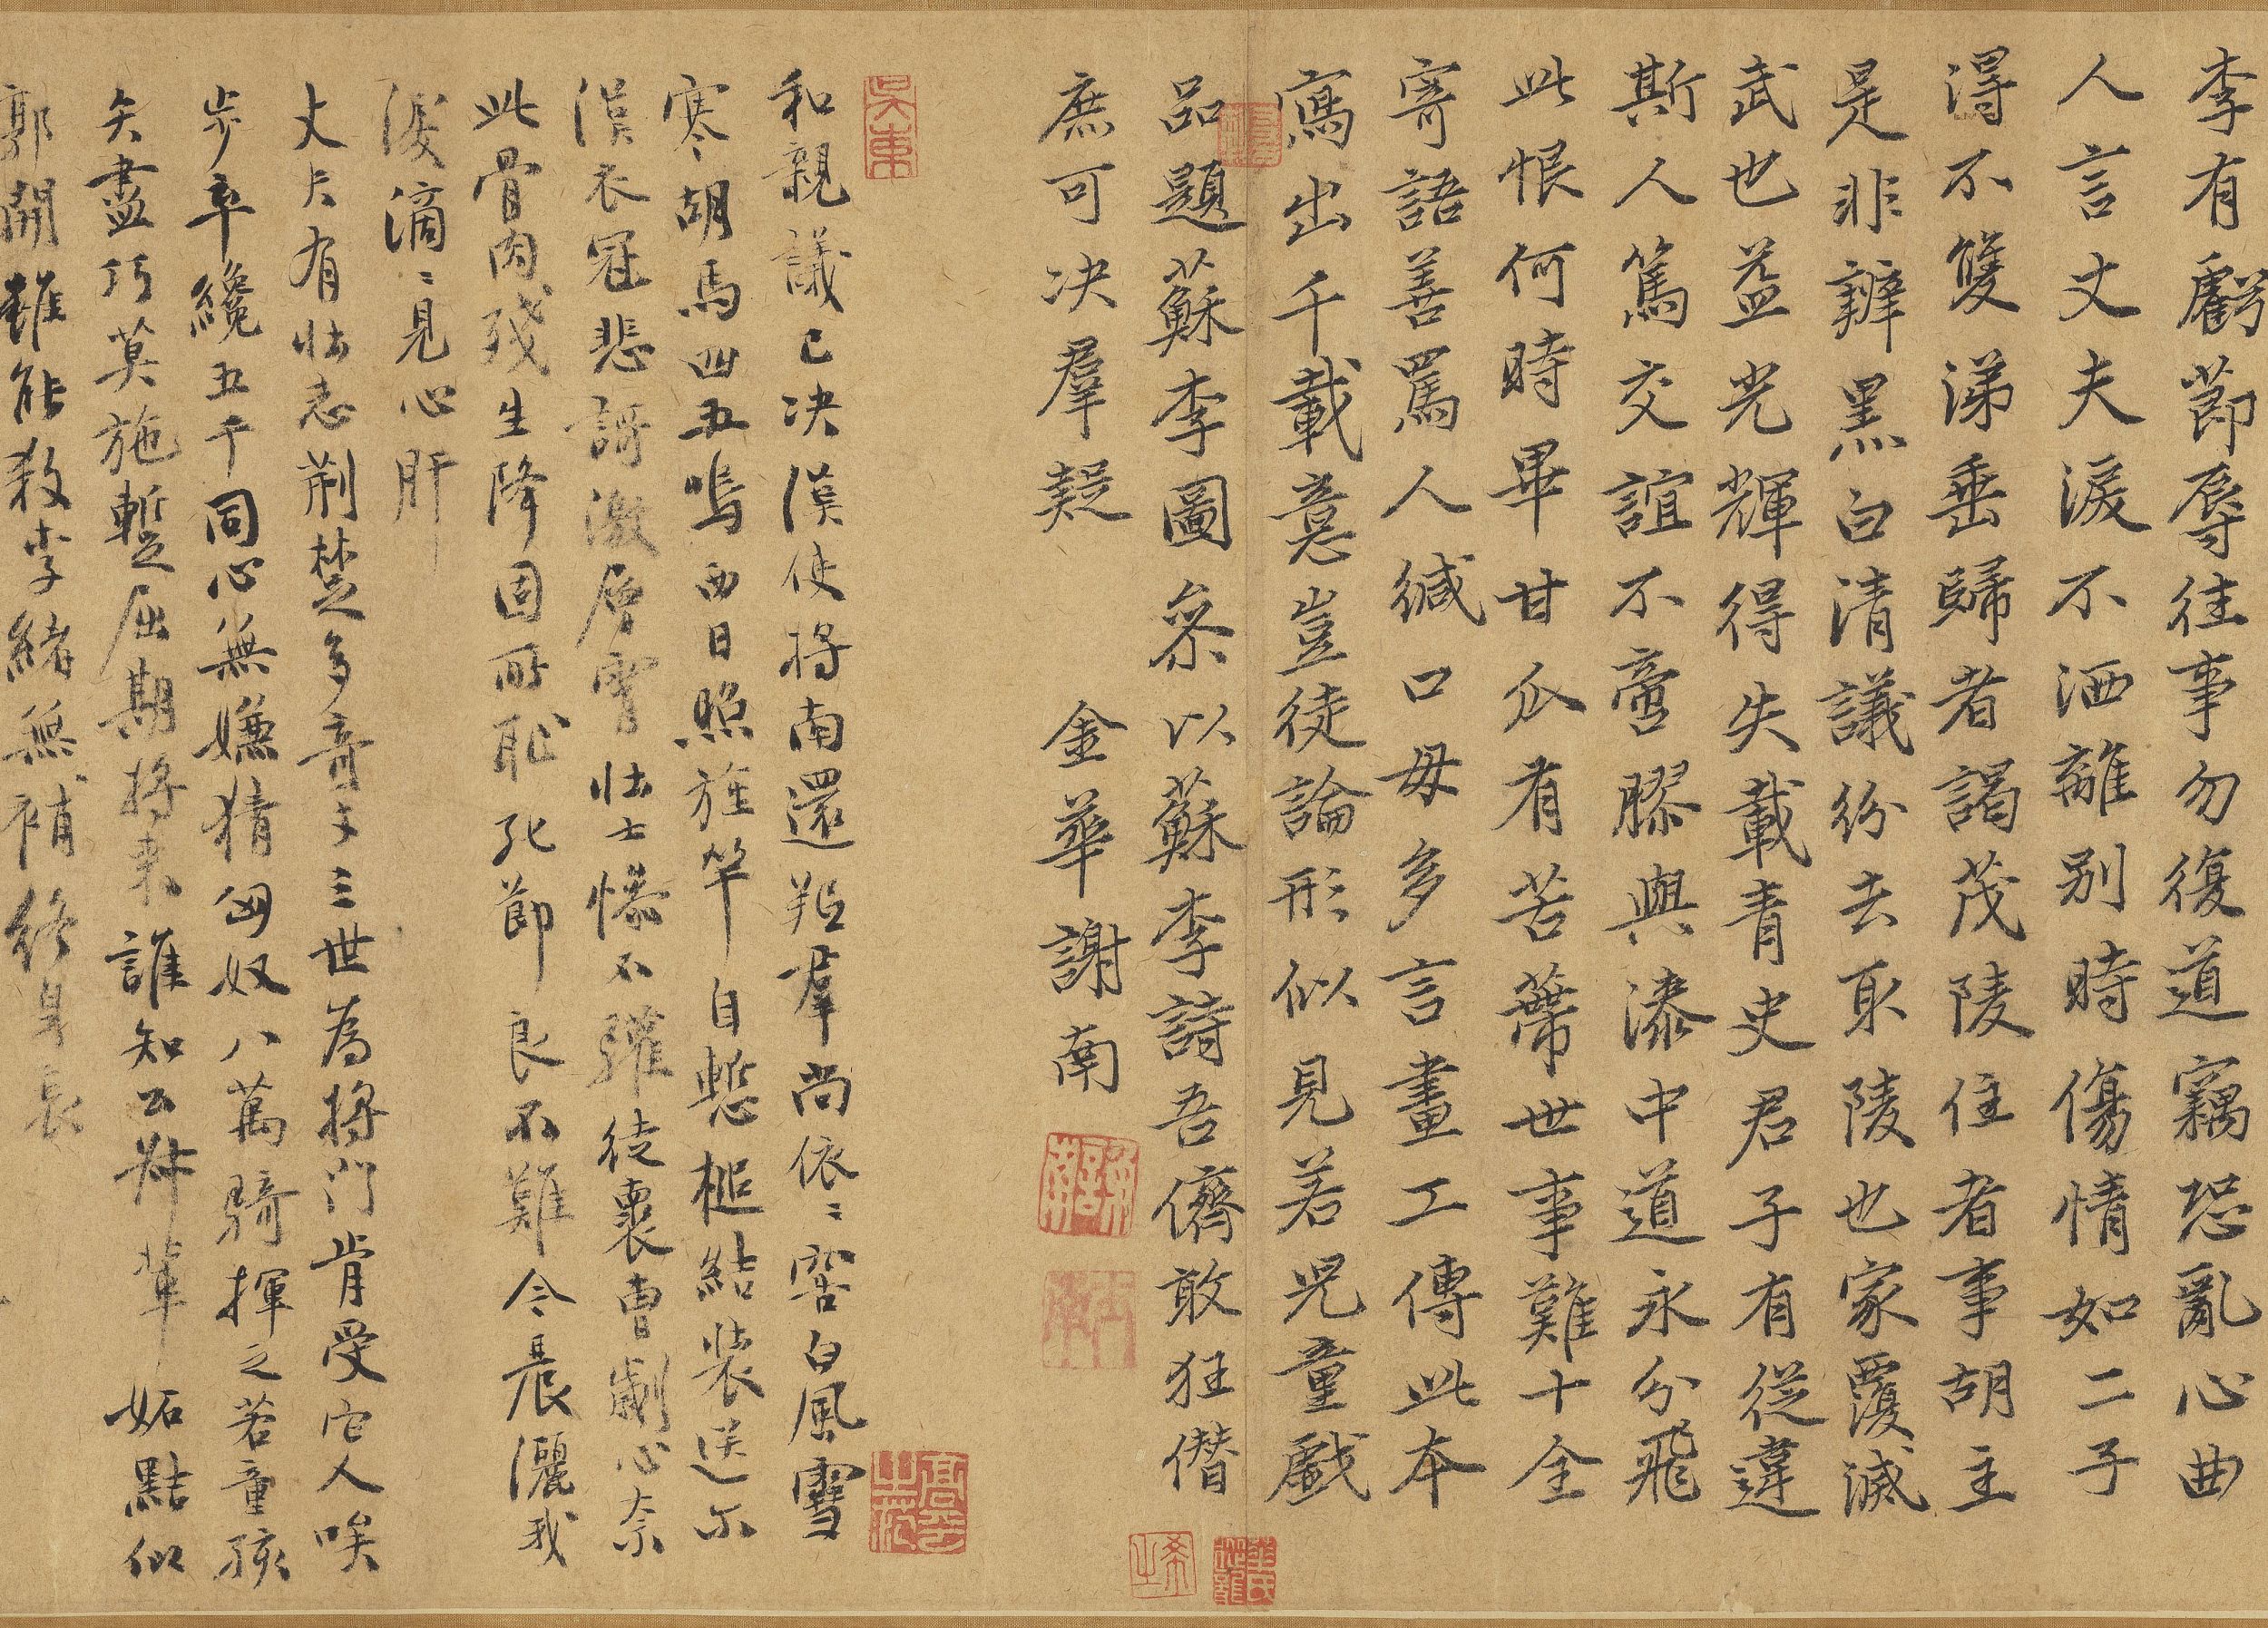 李有虧節辱往事勿復道竊恐亂心曲
人言丈夫淚不洒離別時傷情如二子
得不雙涕垂歸者謁茂陵住者事胡主
是非辧黑白清議紛去取陵也家覆滅
武也益光輝得失載青史君子有從違
斯人篤交誼不啻膠與漆中道永分飛
此恨何時畢甘瓜有苦蒂世事難十全
寄語善罵人緘口毋多言畫工傳此本
寫出千載意豈徒論形似見若兒童戲
品題蘇李圖叅以蘇李詩吾儕敢狂僭
庶可决羣疑 金華謝南
吳東
和親議已决漢使將南還羝羣尚依〻窖白風雪
寒胡馬四五嗚西日照旌竿自慙椎結裝送尔
漢衣冠悲謌激層雲壯士慘不驩徒裹曹劌心奈
此骨肉殘生降固所恥死節良不難今晨灑我
淚滴〻見心肝
丈夫有壯志荆楚多竒才三世為將門肯受它人唉
步卒纔五千同心無嫌猜匈奴八萬騎揮之若童孩
矢盡巧莫施蹔屈期將来誰知公𠦑輩妬黠似
郭開雖能殺李緒無補終身哀